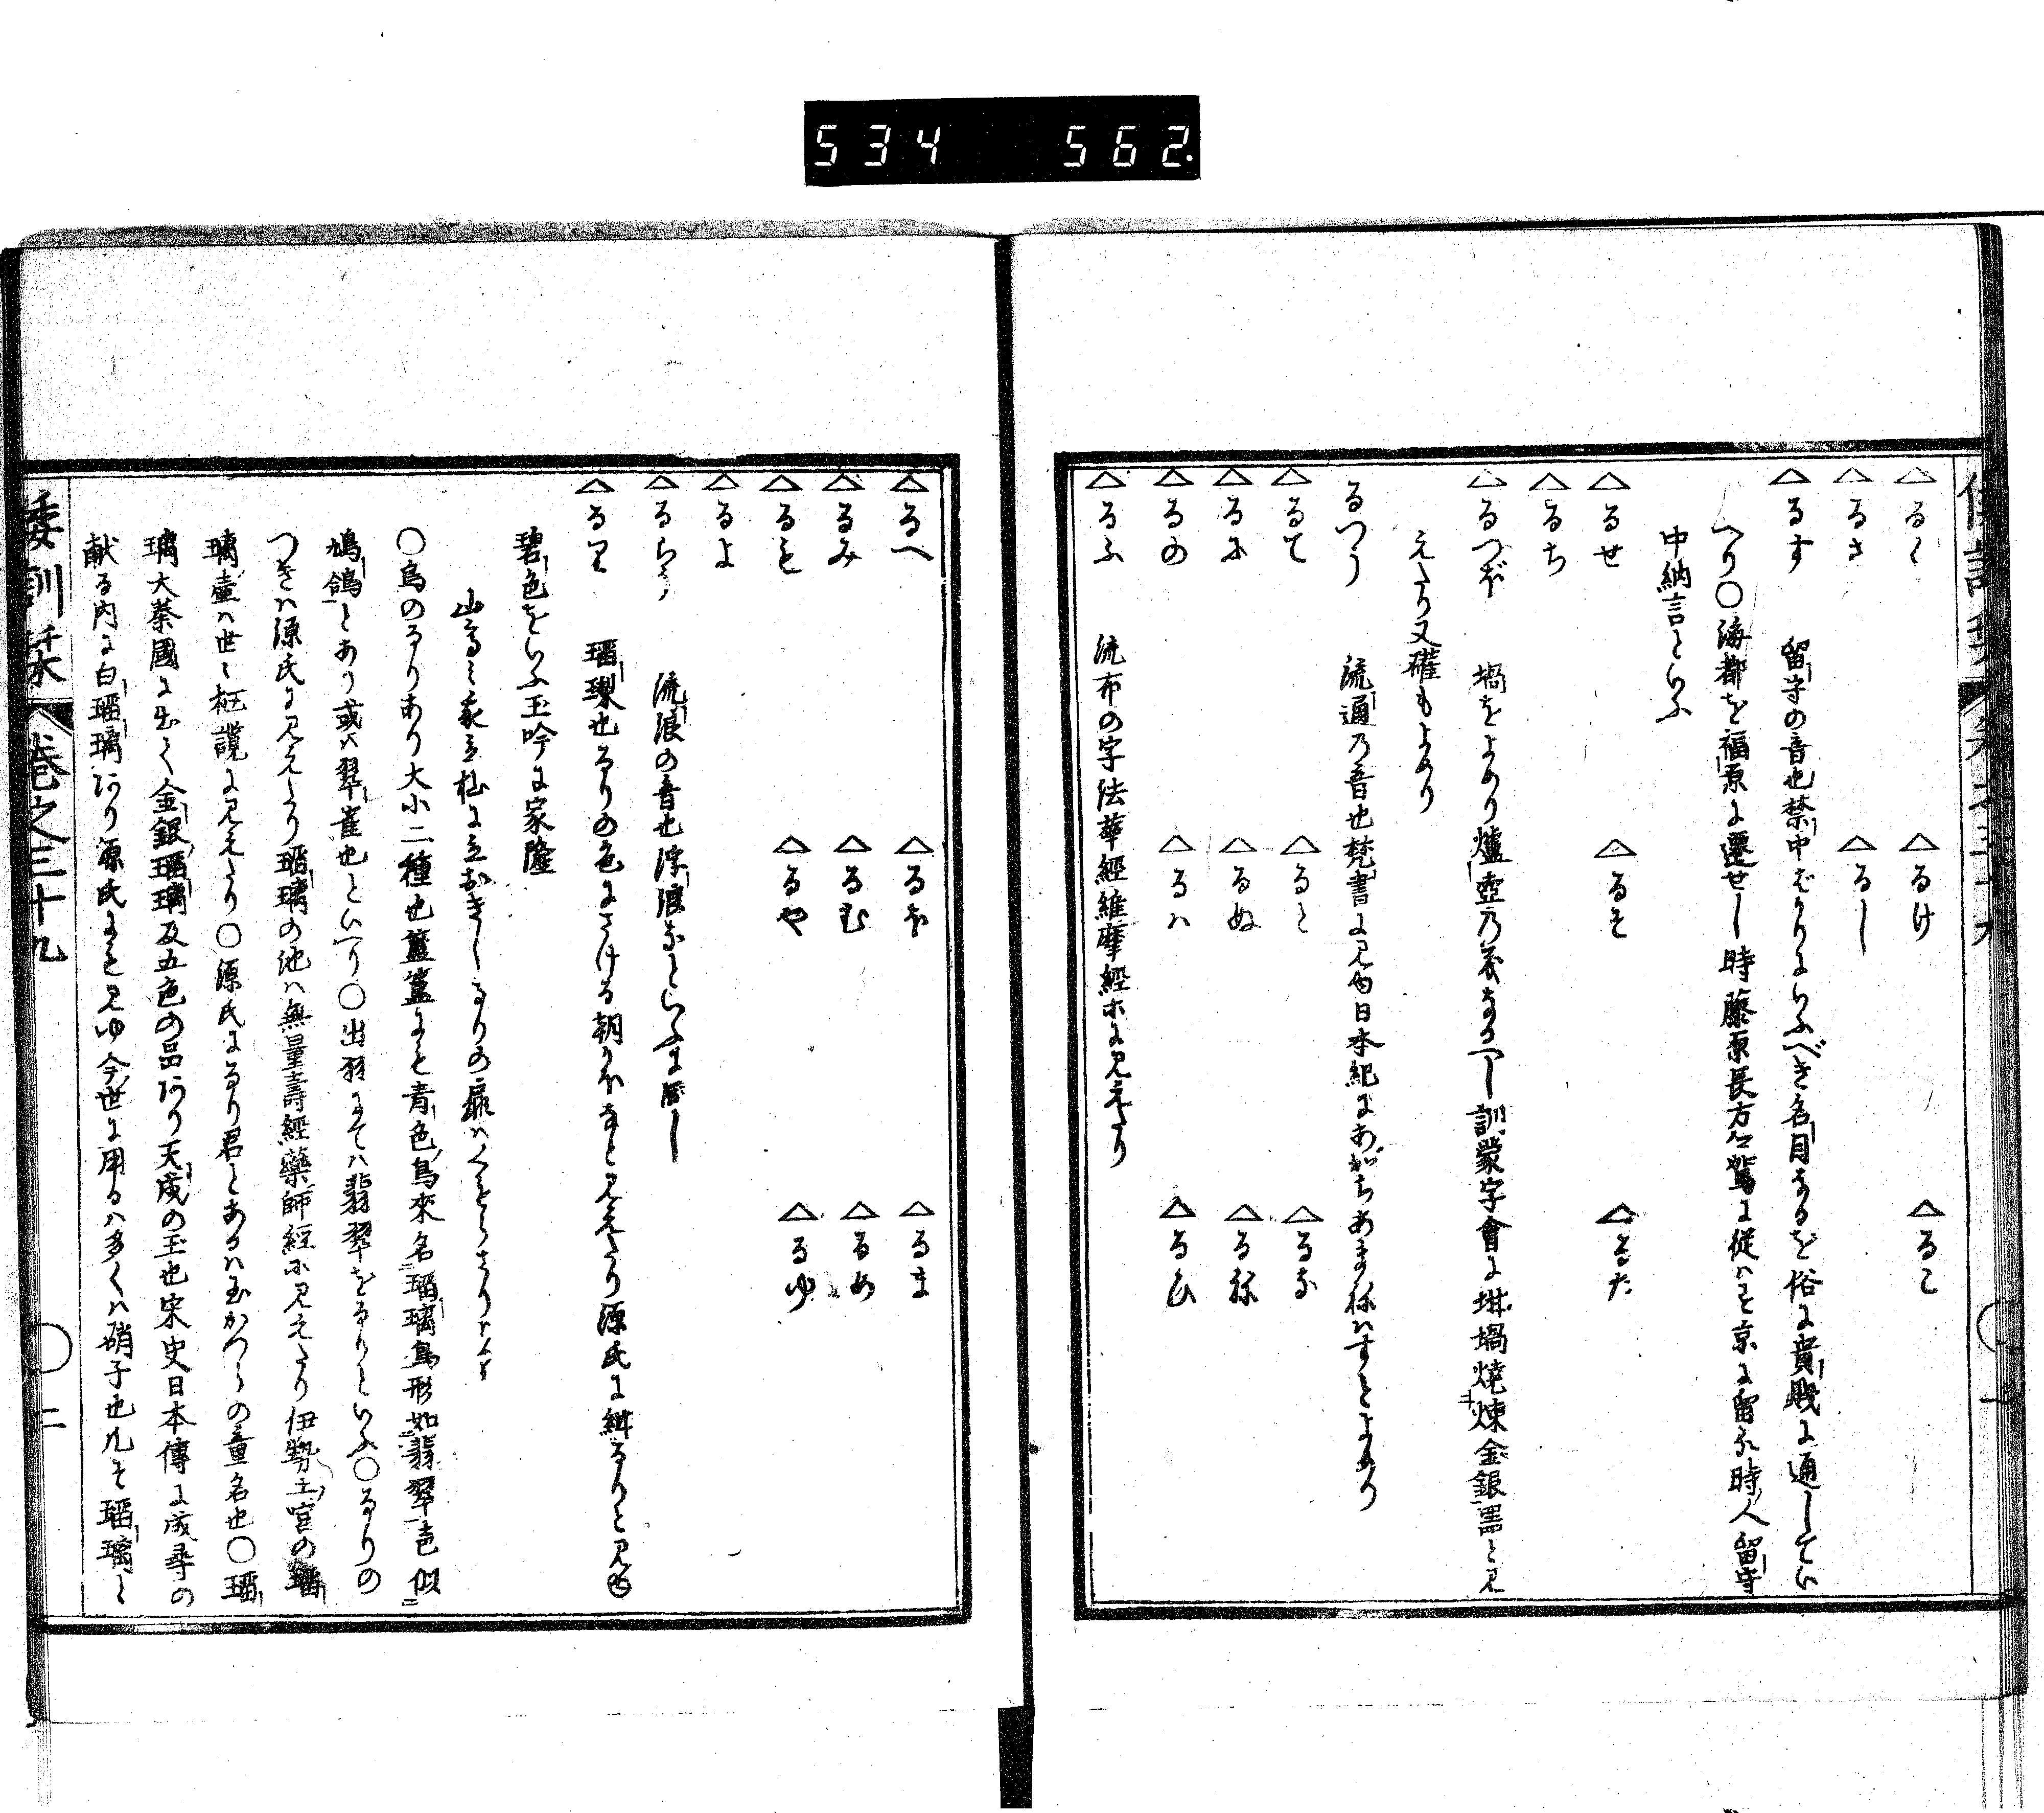 534 562.
△るく △るけ △るこ
△るさ △るし
△るす 留守の音也禁中ばかりにいふべき名目なるを俗に貴賤に通していへり○海都を福原に遷せし時藤原長方卿駕に従はす京に留る時人留守
中納言といふ
△るせ △るそ △るた
△るち
△るつぼ 堝をよめり爐壺乃義なるへし訓蒙字會に坩堝燒煉金銀器と見
えたり又䃯もよめり
るつう 流通乃音也梵書に見ゆ日本紀にあがちあまねはすとよめり
△るて △ると △るな
△るに △るぬ △るね
△るの △るハ △るひ
△るふ 流布の字法華經維摩經ホに見えたり
△るへ △るほ △るま
△るみ △るむ △るめ
△るも △るや △るゆ
△るよ
△るらう 流浪の音也浮浪なといふに同し
△るり 瑠璃也るりの色にさける朝かほなと見えたり源氏に紺るりと見ゆ
碧色をいふ玉吟に家隆
○鳥のるりあり大小二種也簠簋にも青色鳥來名瑠璃鳥形如翡翠色似
鳩鴿とあり或ハ翠雀也といへり○出羽にてハ翡翠をるりといふ○るりの
つきハ源氏に見えたり瑠璃の池ハ無量壽經藥師經ホ見えたり伊勢王宮の瑠
璃壷ハ世々框謊に見えたり○源氏にるり君とあるハ玉かつらの童名也○瑠
璃大秦國に出て金銀瑠璃及五色の品あり天成の玉也宋史日本傳に成尋の
献る内に白瑠璃あり源氏にも見ゆ今世に用るハ多くハ硝子也凡そ瑠璃と
倭訓栞 卷之三十九 二